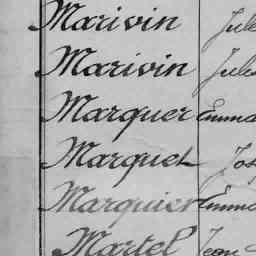 Marivin Jule
Marivin Jules
Marquer Emma
Marquet Jos
Marquier Emma
Martel Jean